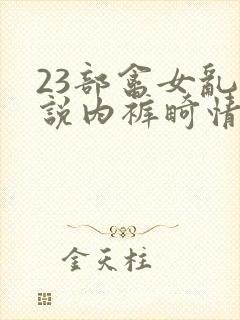 23部畜女乱
說内裤畸情
金天柱